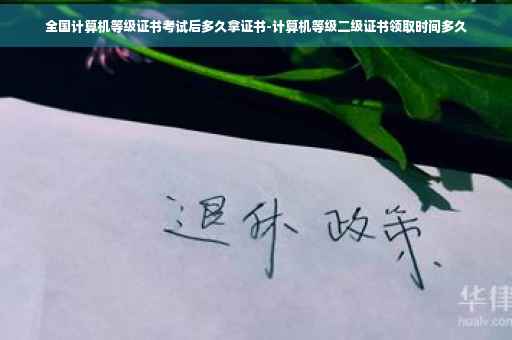 全国计算机等级证书考试后多久拿证书-计算机等级二级证书领取时间多久
退休 政策
华律
hualv.com